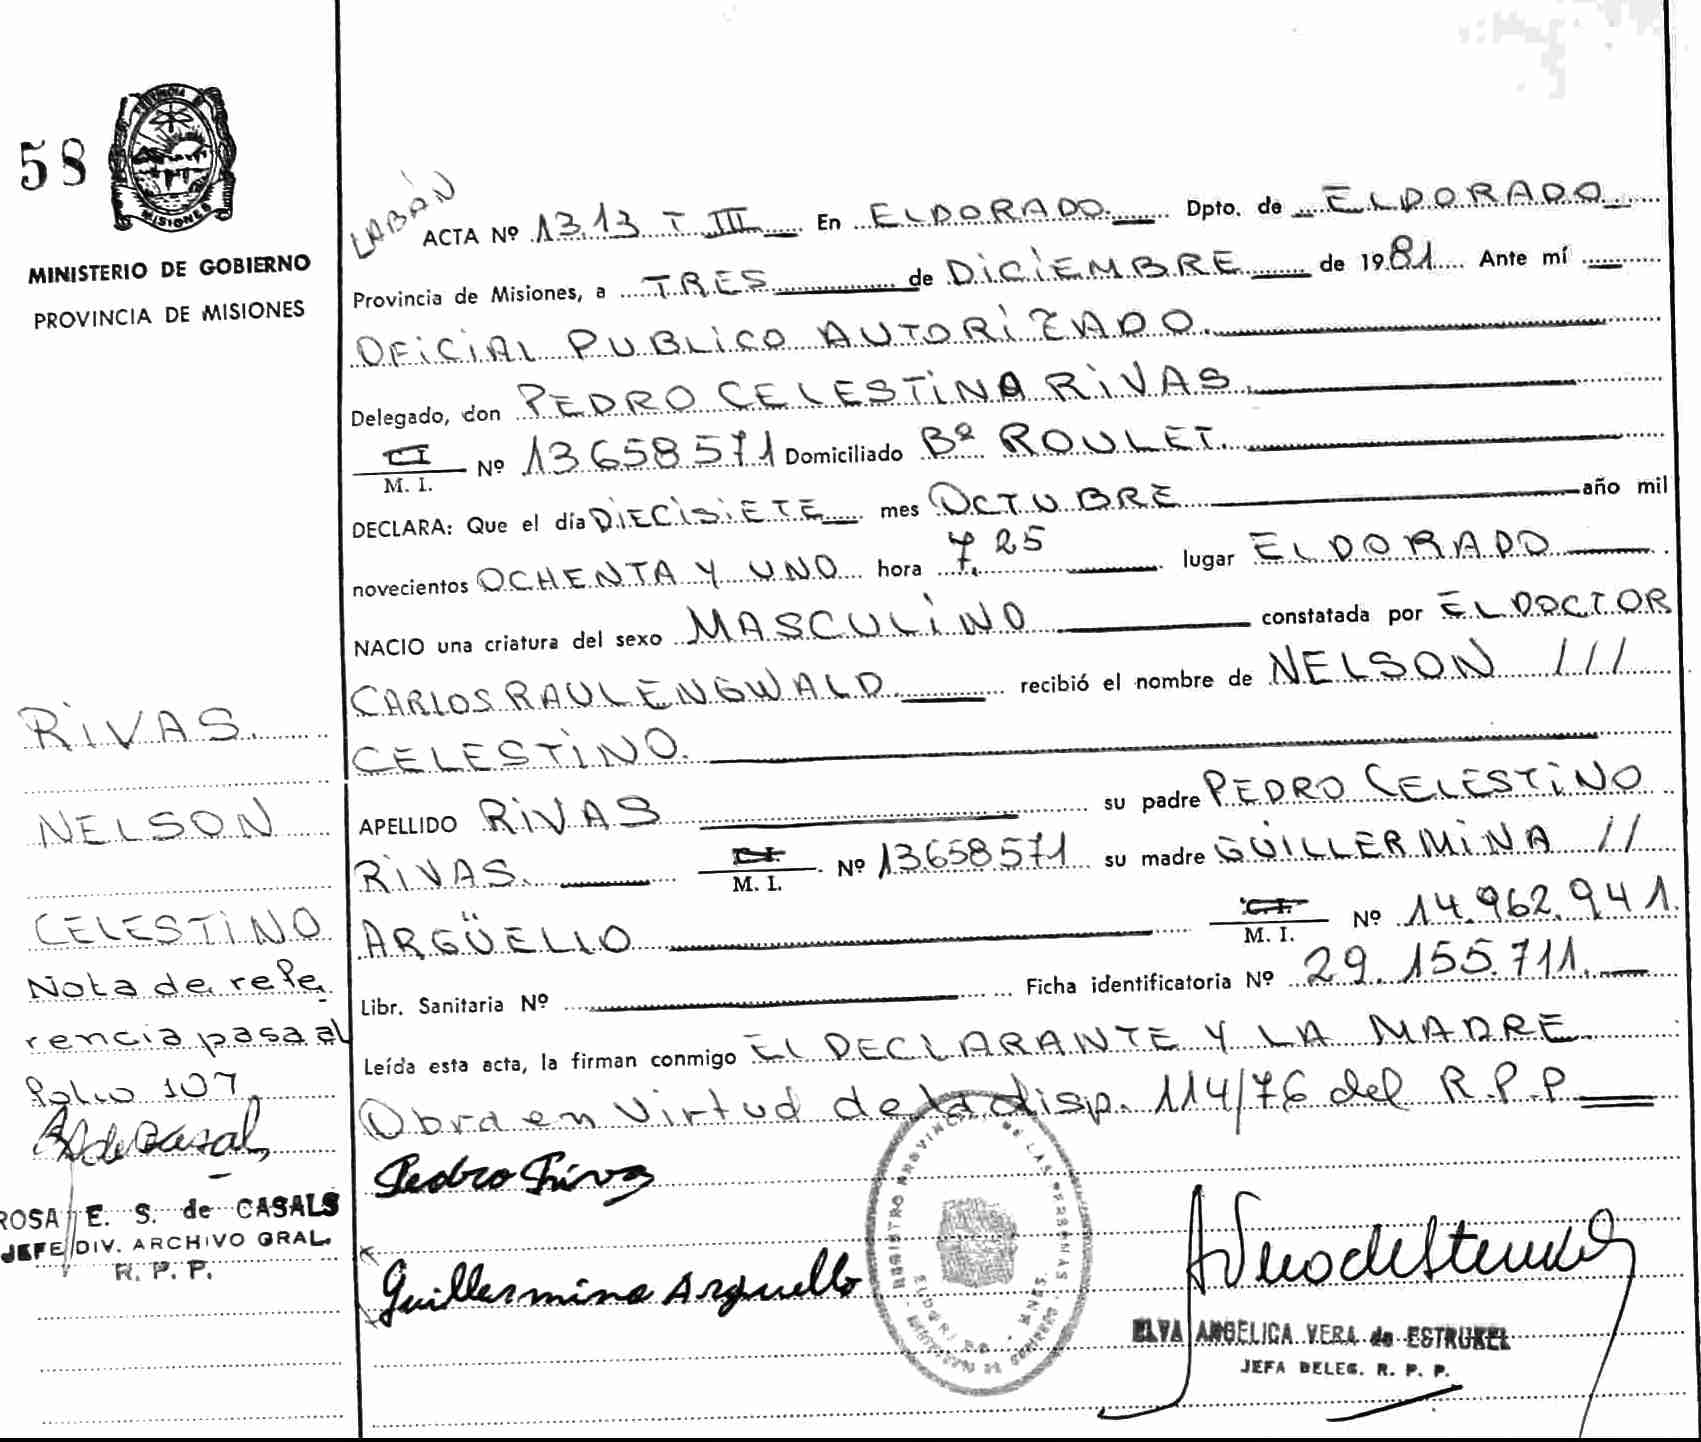 58
MISIONES
MINISTERIO DE GOBIERNO
PROVINCIA DE MISIONES
LABAN
ACTA Nº 1313 T III En ELDORADO. Dpto. de ELDORADO
Provincia de Misiones, a TRES de DICIEMBRE de 1981 Ante mí
OFICIAL PUBLICO AUTORIZADO.
Delegado, don PEDRO CELESTINA RIVAS.
CI
M. I. Nº 13658571 Domiciliado Bº ROULET.
DECLARA: Que el día DIECISIETE mes OCTUBRE año mil
novecientos OCHENTA Y UNO hora 7.25 lugar ELDORADO
NACIO una criatura del sexo MASCULINO constatada por EL DOCTOR
CARLOS RAUL ENGWALD recibió el nombre de NELSON ///
CELESTINO.
APELLIDO RIVAS su padre PEDRO CELESTINO
RIVAS. C.I.
M. I. Nº 13658571 su madre GUILLERMINA //
ARGÜELLO C.I.
M. I. Nº 14.962.941.
Libr. Sanitaria Nº Ficha identificatoria Nº 29.155.711.
Leída esta acta, la firman conmigo EL DECLARANTE Y LA MADRE
Obra en virtud de la disp. 114/76 del R.P.P
Pedro Riva
Guillermina Arguello
REGISTRO PROVINCIAL DE LAS PERSONAS
ELVA ANGELICA VERA de ESTRUKEL
JEFA DELEG. R. P. P.
RIVAS.
NELSON
CELESTINO
Nota de refe
rencia pasa al
Folio 107
ROSA E. S. de CASALS
JEFE DIV. ARCHIVO GRAL.
R. P. P.